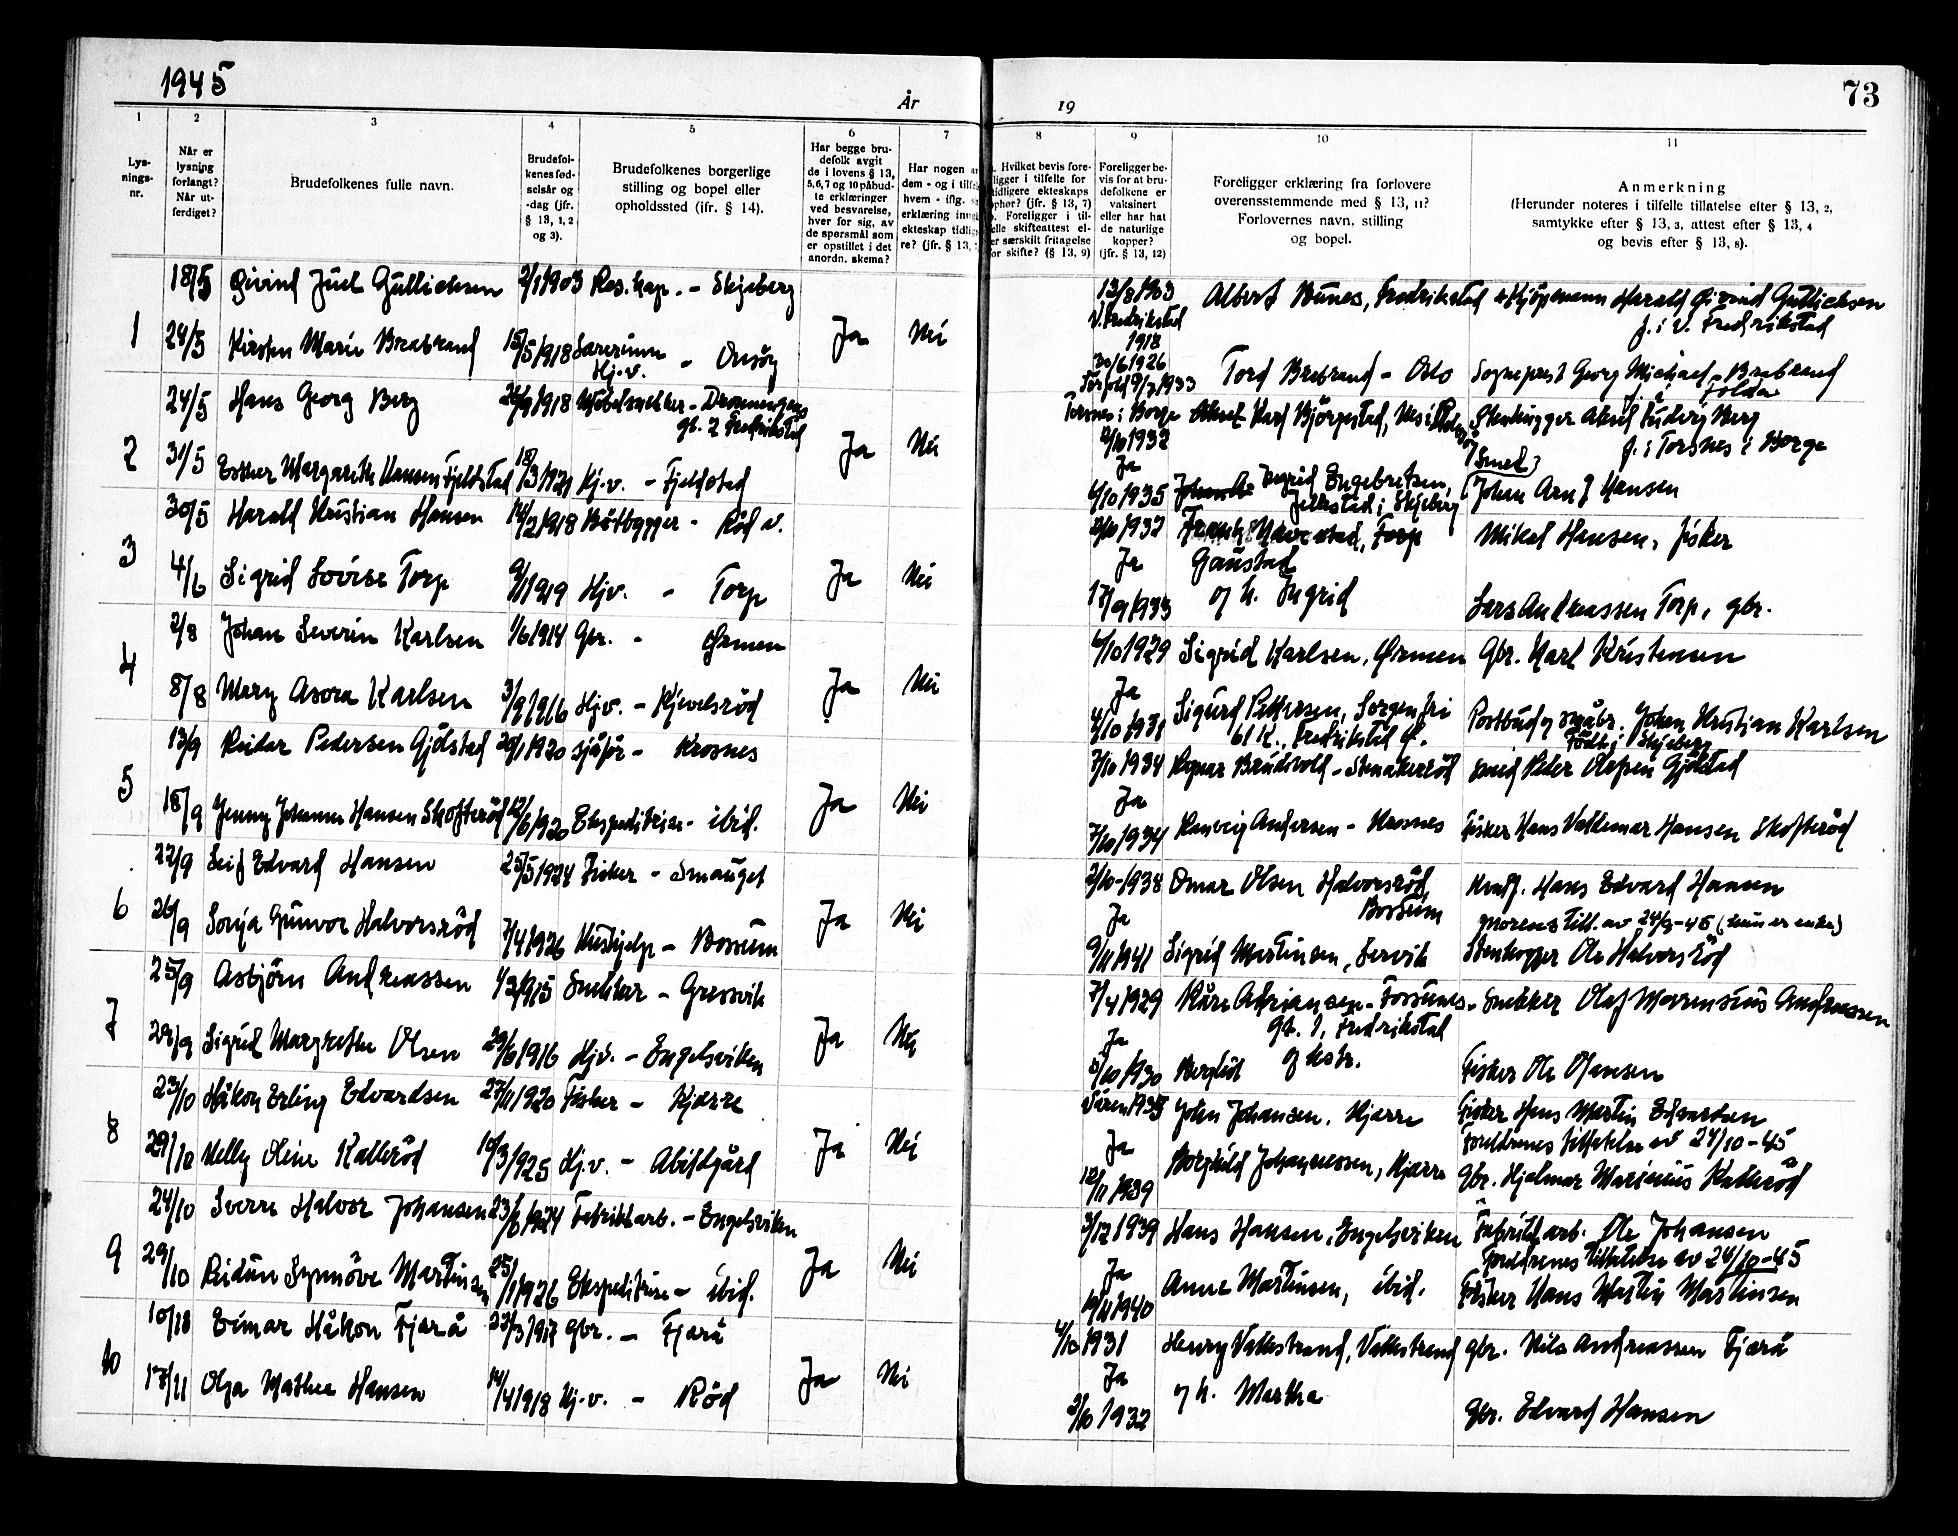 1945
År
19
73
1
2
3
4
5
6
7
8
9
10
11
Lys-
nings-
nr.
Når er
lysning
forlangt?
Når ut-
ferdiget?
Brudefolkenes fulle navn.
Brudefol-
kenes fød-
selsår og
-dag (jfr.
§ 13, 1, 2
og 3).
Brudefolkenes borgerlige
stilling og bopel eller
opholdssted (ifr. § 14).
Har begge bru-
defolk avgit
de i lovens § 13,
5,6,7 og 10 påbud-
te erklæringer
ved besvarelse,
hver for sig, av
de spørsmål som
er opstillet i det
anordn. skema?
Har nogen
dem - og i
hvem - iflg.
erklæring
ekteskap
re? (jfr. § 13,
Hvilket bevis fore-
ligger i tilfelle for
tidligere ekteskaps
ophør? (jfr. § 13, 7)
Foreligger i til-
elle skifteattest el-
er særskilt fritagelse
or skifte? (§ 13, 9)
Foreligger be-
vis for at bru-
defolkene er
vaksinert
eller har hat
de naturlige
kopper?
(jfr. § 13, 12)
Foreligger erklæring fra forlovere
overensstemmende med § 13, 11?
Forlovernes navn, stilling
og bopel.
Anmerkning
(Herunder noteres i tilfelle tillatelse efter § 13, 2,
samtykke efter § 13, 3, attest efter § 13, 4
og bevis efter § 13, 8).
18/5 Øivind Juel Gullichsen 2/1 1903 Res. kap. - Skjeberg
13/8 1903
V. Fredrikstad
1918
Albert Bunes, Fredrikstad Kjøpmann Harald Øivind Gullichsen
f. i V. Fredrikstad
1 24/5 Kirsten Marie Brabrand 15/5 1918 - Onsøy Ja Nei
Hj.v.
20/6 1926
9/7 1933
Tord Brabrand - Oslo Sogneprest Georg Michael Brabrand
24/5 Hans Georg Berg 1918 Møbelsnekker -
gt. 2 Fredrikstad
Torsnes i Borge
1932
Karl Björgestad, Stenhugger Ludvig Berg
f. i Torsnes i Borge
2 31/5 Esther Margarethe Hansen Fjeldstad 18/3 1921 Hj.v. - Fjeldstad Ja Nei
Ja
6/10 1935 Ingrid Engebretsen,
i Skjeberg
(Smed)
Johan Arnt Hansen
30/5 Harald Kristian Hansen 14/2 1918 Båtbygger - Röd v.
2/10 1932 Torp Mikal Hansen, fisker
Gaustad
3 4/6 Sigrid Lovise Torp 9/1 1919 Hjv. - Torp Ja Nei
Ja
17/9 1933 og h. Ingrid Lars Andreassen Torp, gbr.
2/8 Johan Severin Karlsen 1/6 1914 Gbr. - Ørmen
6/10 1929 Sigrid Karlsen, Ørmen Gbr. Karl Kristensen
4 8/8 Mary Asora Karlsen 3/9 1916 Hjv. - Kjevelsröd Ja Nei
Ja
4/10 1931 Sigurd Pettersen, Sorgenfri
bl. k., Fredrikstad
Postbud og småbr. Johan Kristian Karlsen
Född i Skjeberg
13/9 Reidar Pedersen Gjölstad 20/1 1920 sjåför - Krosnes
7/10 1934 Ragnar Brudevold - Smed Peder Olafsen Gjölstad
5 18/9 Jenny Johanne Hansen Skofteröd 12/6 1920 Ekspeditrise - ibid. Ja Nei
Ja
7/10 1934 Ranveig Andersen - Krosnes Fisker Hans Valdemar Hansen Skofteröd
22/9 Leif Edvard Hansen 25/5 1924 Fisker - Smauget
2/10 - 1938 Omar Olsen Halvorsröd,
Bossum
Hans Edvard Hansen
morens till. av 24/9-45 (hun er enke)
6 26/9 Sonja Gunvor Halvorsröd 7/4 1926 Hushjelp - Bossum Ja Nei
Ja
9/11 1941 Sigrid Martinsen, Lervik Stenhugger Ole Halvorsröd
25/9 Asbjörn Andreassen 4/2 1915 Snekker - Gressvik
7/4 1929 Kåre Adriansen -
gt. 1, Fredrikstad
Snekker Olaf Marensius Andreassen
7 29/9 Sigrid Margrethe Olsen 29/6 1916 Hjv. - Engelsviken Ja Nei
Ja
5/10 1930 Bergliot og hstr. Fisker Ole Olausen
23/10 Håkon Erling Edvardsen 27/11 1920 Fisker - Kjærre
Våren 1935 John Johansen, Kjærre Fisker Hans Martin Edvardsen
Foreldrenes tillatelse av 24/10-45
8 29/10 Nelly Oleine Kalleröd 10/3 1925 Hj.v. - Abildgård Ja Nei
Ja
12/11 1939 Borghild Johannessen, Kjærre Gbr. Hjalmar Marinius Kalleröd
24/10 Sverre Halvor Johansen 23/6 1924 Fabrikkarb. - Engelsviken
3/12 1939 Hans Hansen, Engelsviken Fabrikkarb. Ole Johansen
Foreldrenes tillatelse av 24/10-45
9 29/10 Reidun Synnöve Martinsen 25/1 1926 Ekspeditrise - ibid. Ja Nei
Ja
10/11 1940 Anne Martinsen, ibid. Fisker Hans Martin Martinsen
Einar Håkon Fjærå 23/3 1917 gbr. - Fjærå
4/10 1931 Henry Valkstrand, Valkstrand gbr. Nils Andreassen Fjærå
10 17/11 Olga Mathea Hansen 14/4 1918 Hj.v. - Röd Ja Nei
Ja
2/10 1932 og h. Martha Gbr. Edvard Hansen